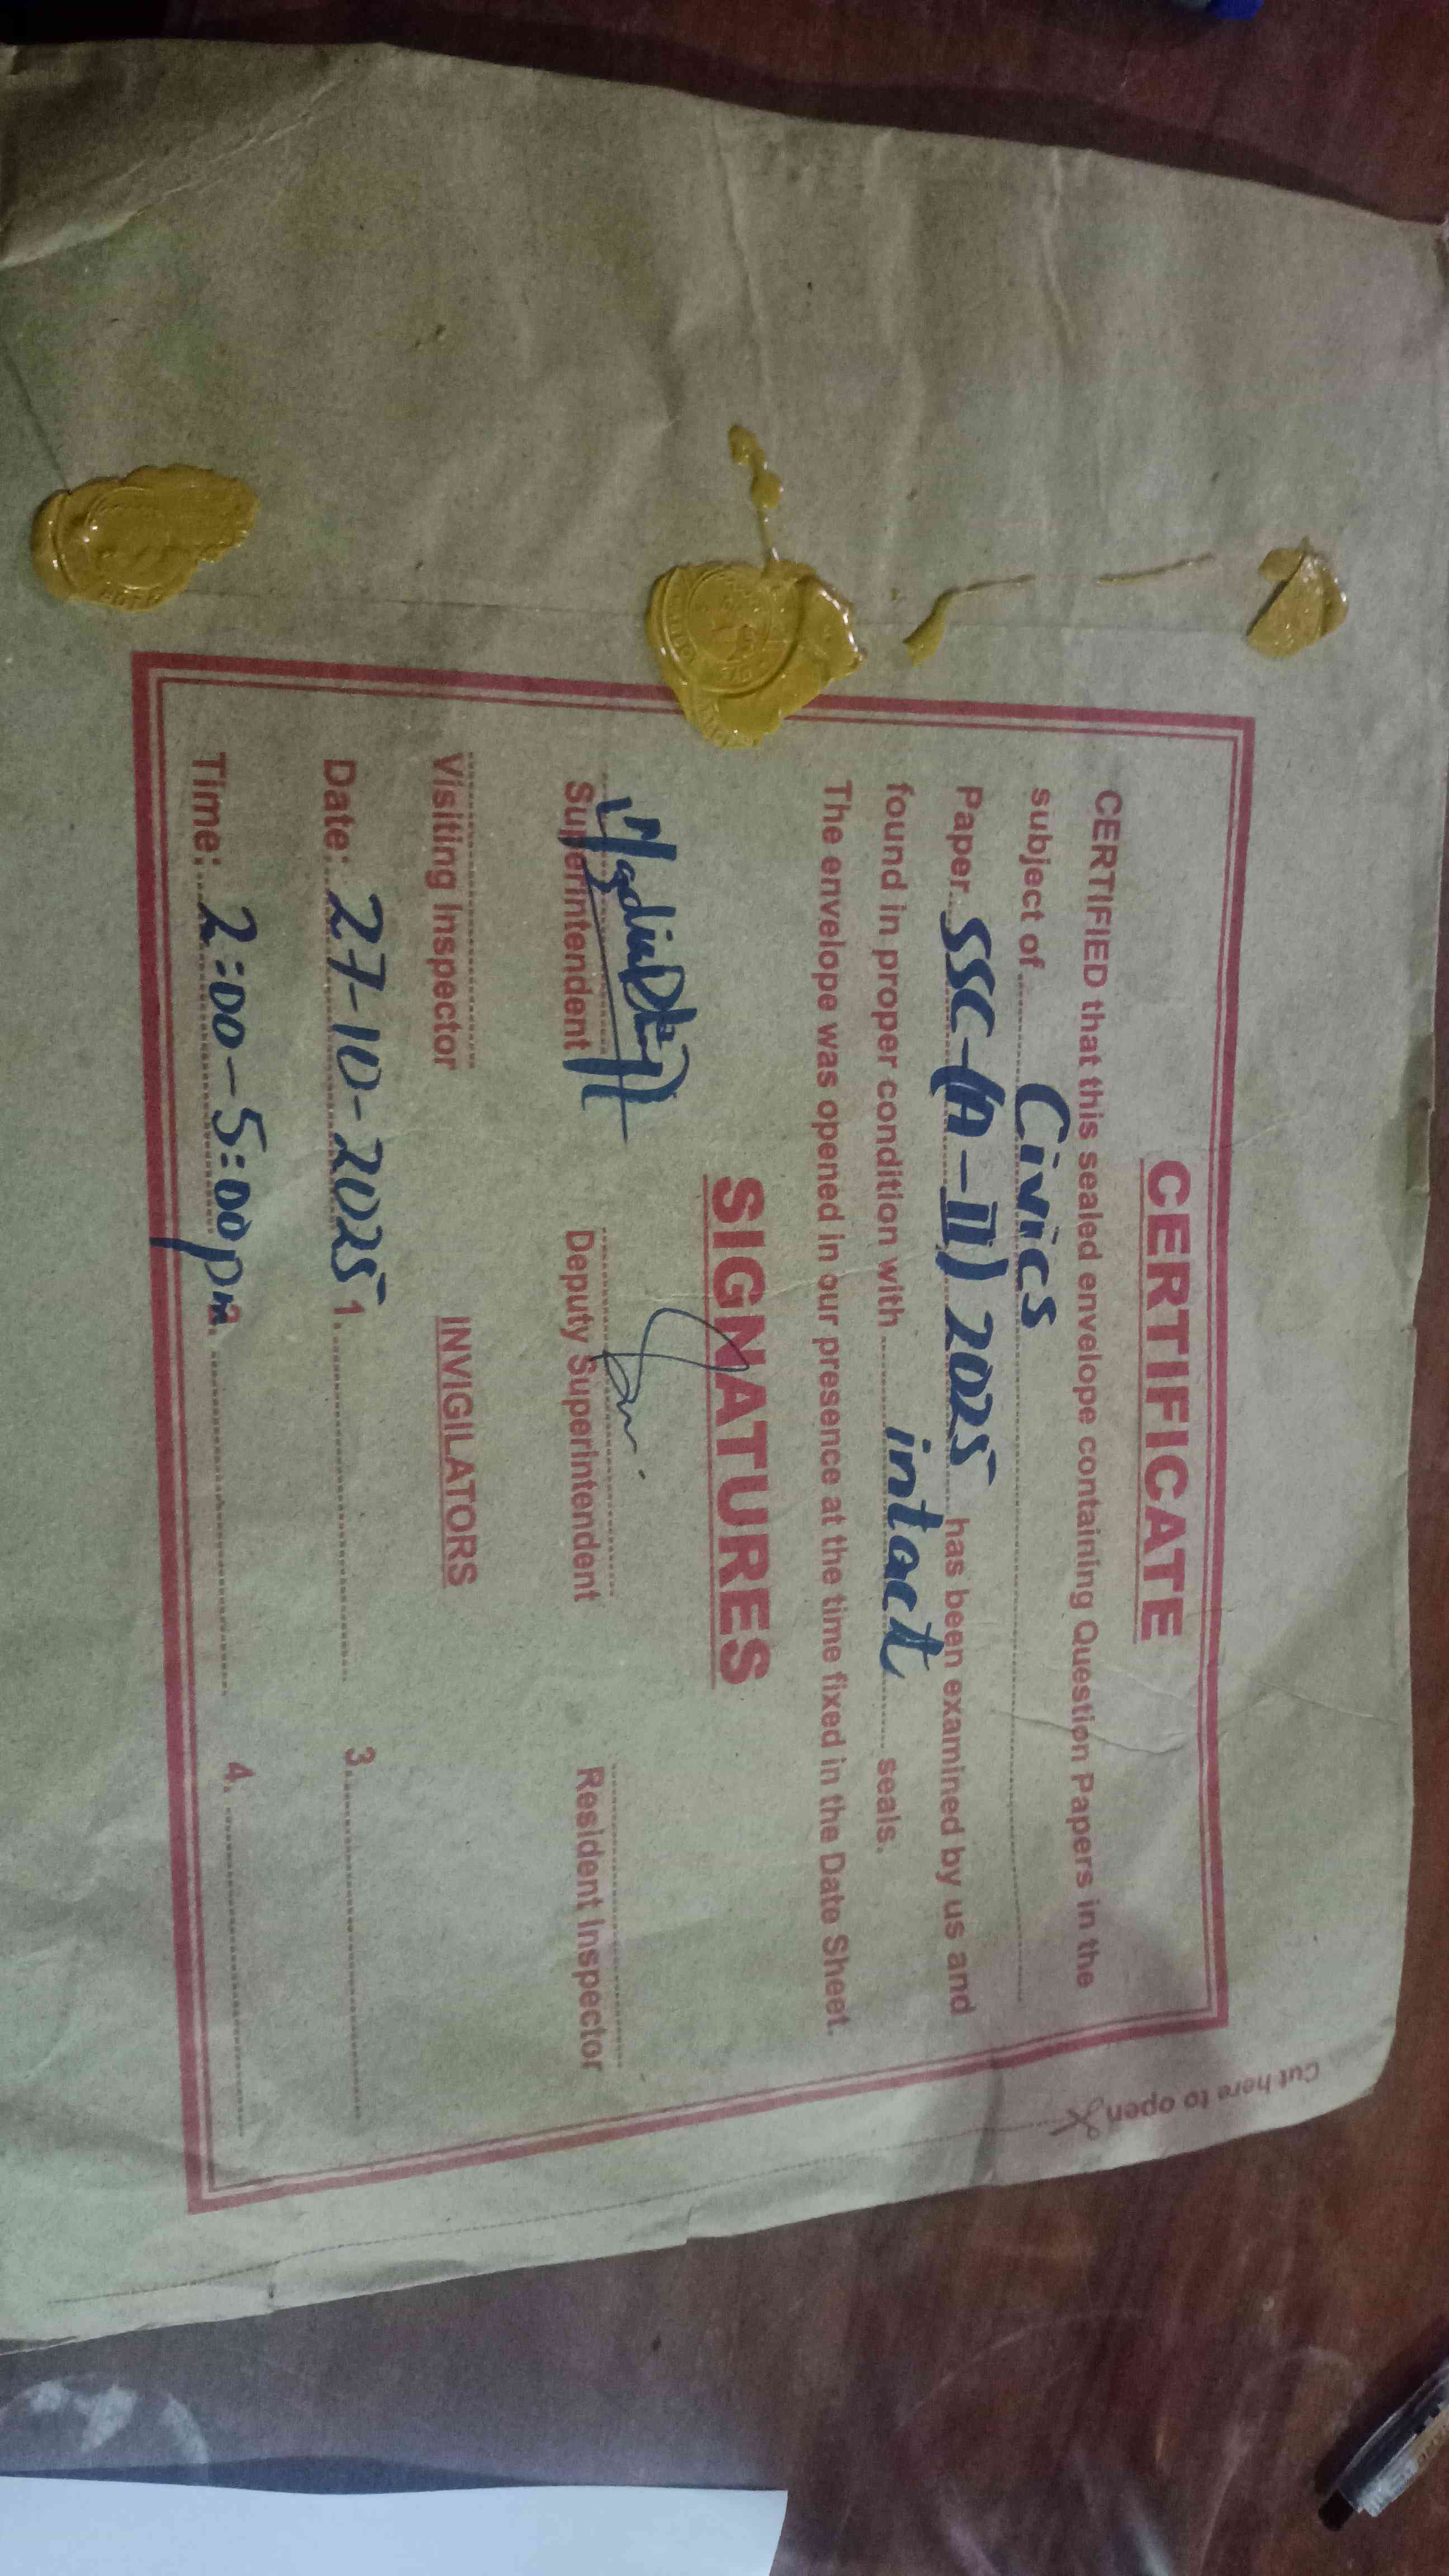 CERTIFICATE
CERTIFIED that this sealed envelope containing Question Papers in the
subject of Civics
Paper SSC-(A-II) 2025 has been examined by us and
found in proper condition with intact seals.
The envelope was opened in our presence at the time fixed in the Date Sheet.
SIGNATURES
Superintendent Deputy Superintendent Resident Inspector
Visiting Inspector INVIGILATORS
Date: 27-10-2025 1. 3.
Time: 2:00-5:00pm 2. 4.
Cut here to open